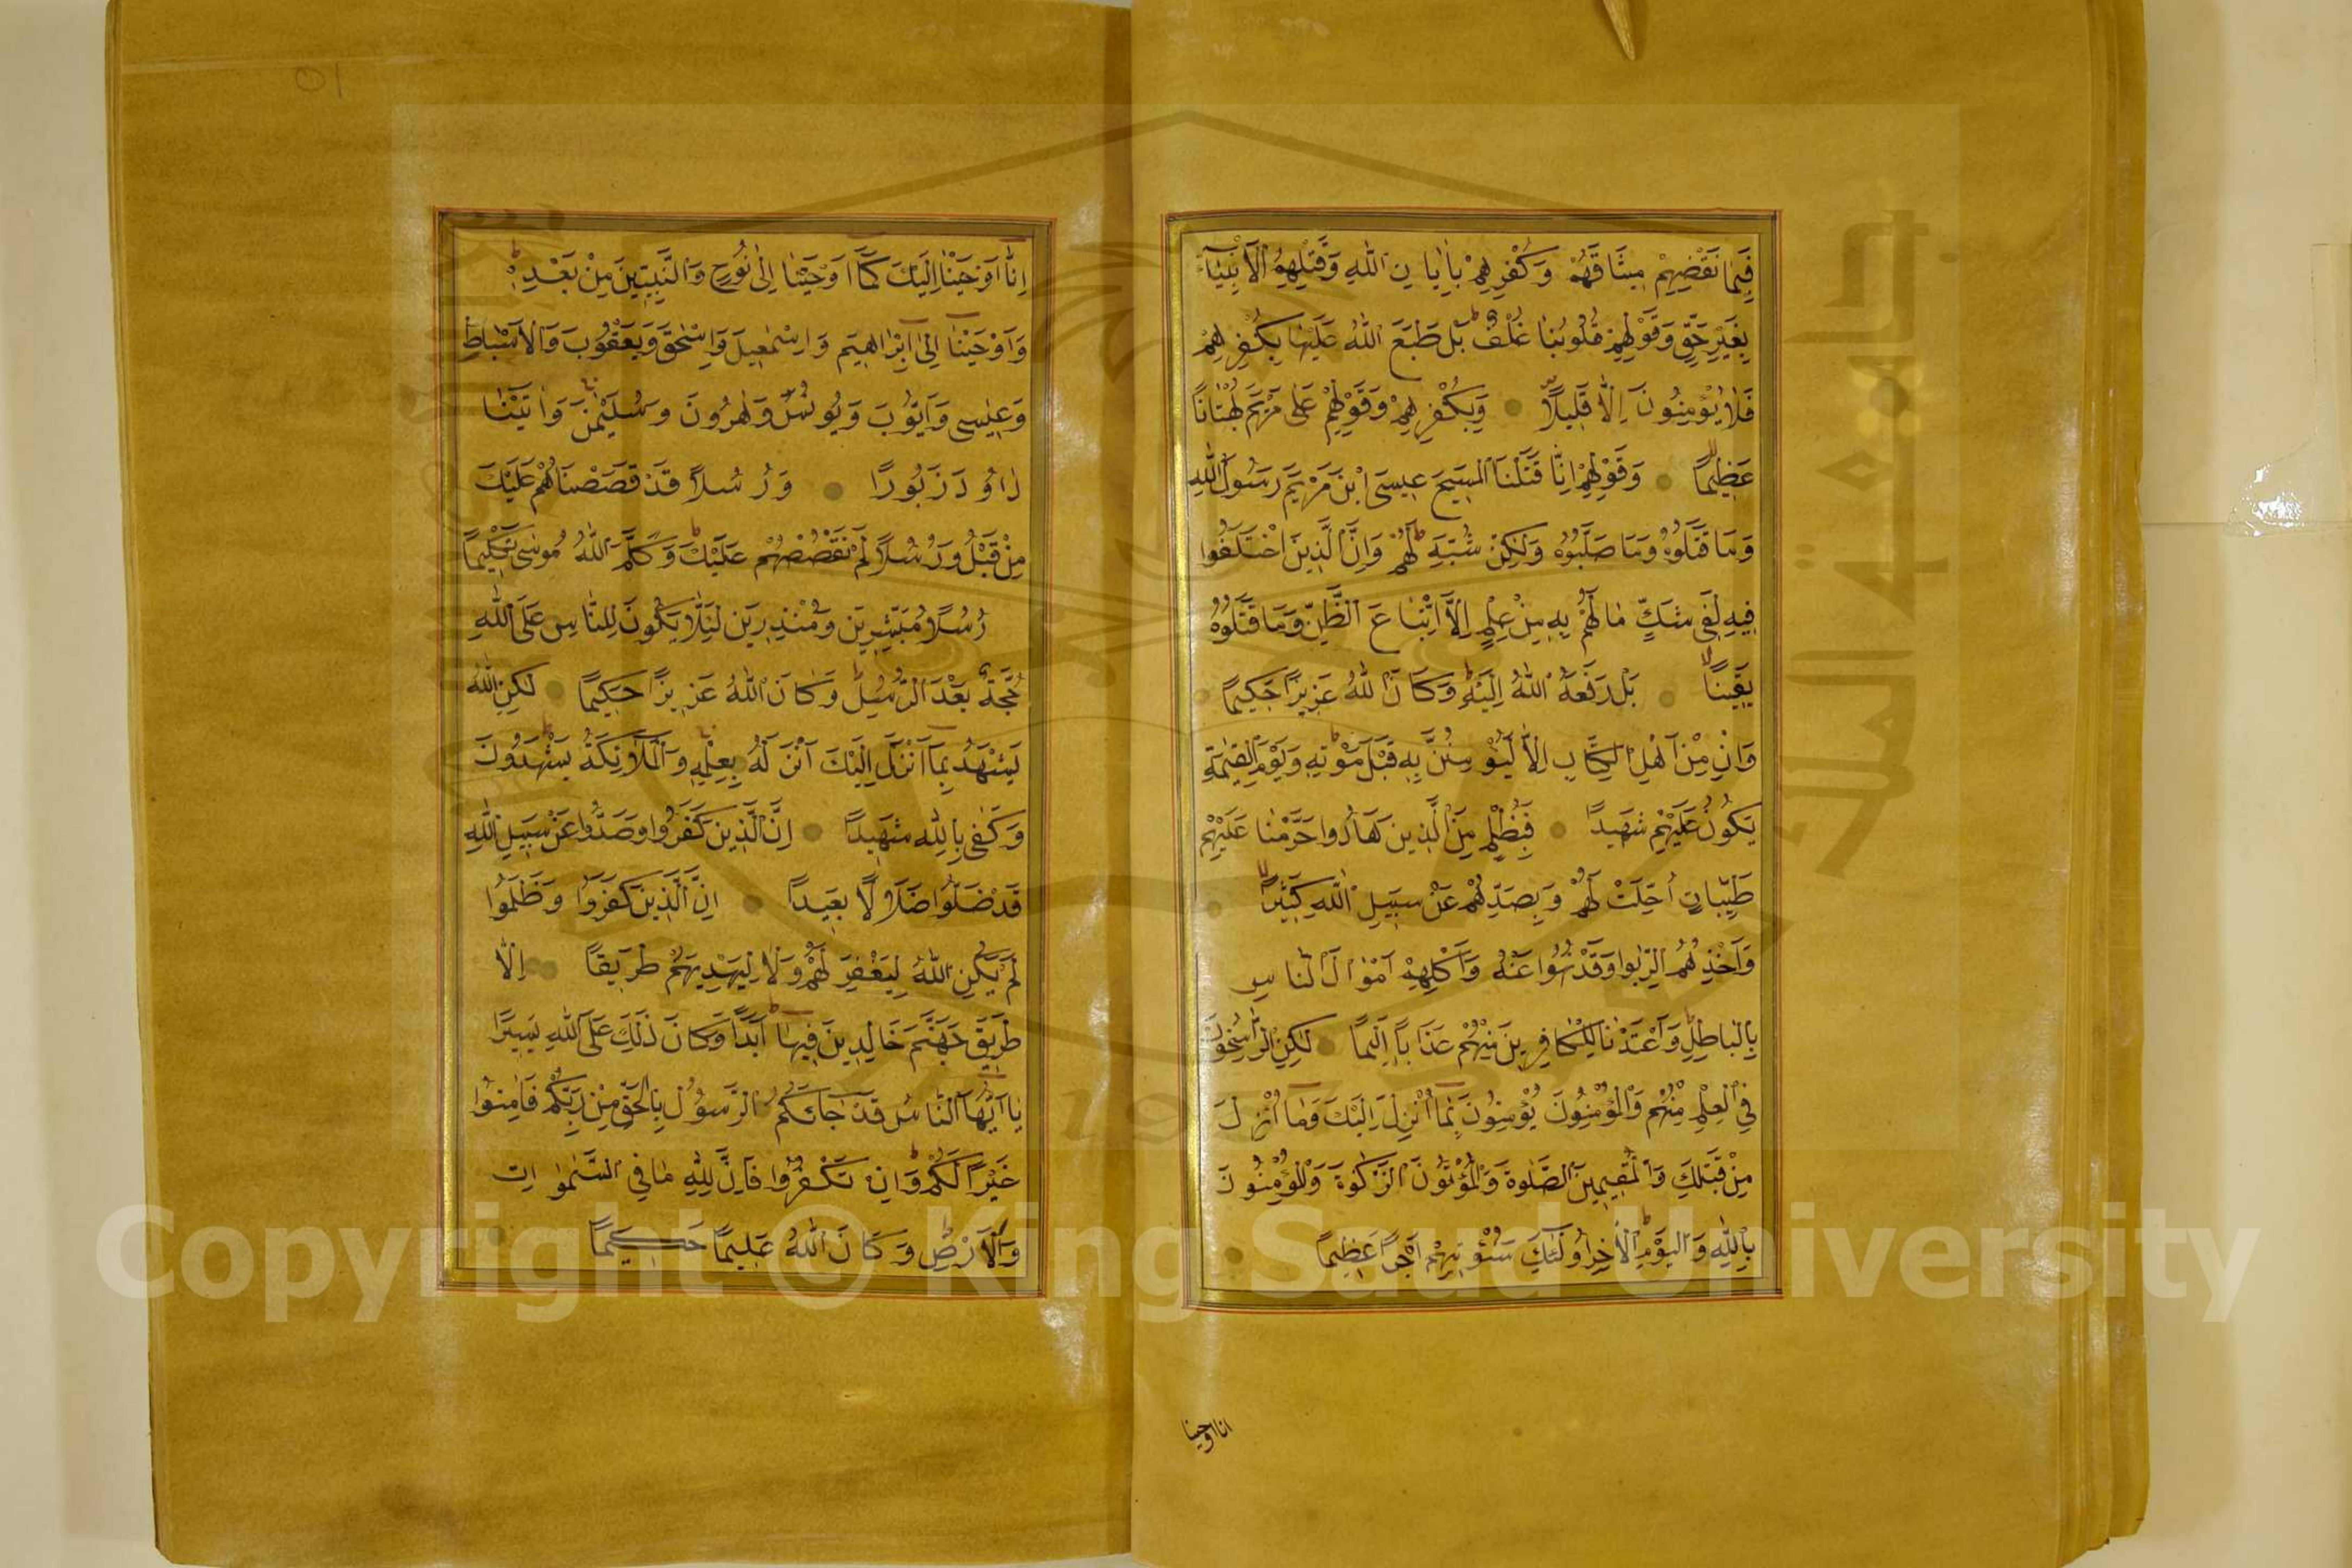 فَبِمَا نَقْضِهِمْ مِيثَاقَهُمْ وَكُفْرِهِمْ بِاٰيَاتِ اللّٰهِ وَقَتْلِهِمُ الْاَنْبِيَآءَ
بِغَيْرِ حَقٍّ وَقَوْلِهِمْ قُلُوبُنَا غُلْفٌ بَلْ طَبَعَ اللّٰهُ عَلَيْهَا بِكُفْرِهِمْ
فَلَا يُؤْمِنُونَ اِلَّا قَلِيلًا وَبِكُفْرِهِمْ وَقَوْلِهِمْ عَلٰى مَرْيَمَ بُهْتَانًا
عَظِيمًا وَقَوْلِهِمْ اِنَّا قَتَلْنَا الْمَسِيحَ عِيسَى ابْنَ مَرْيَمَ رَسُولَ اللّٰهِ
وَمَا قَتَلُوهُ وَمَا صَلَبُوهُ وَلٰكِنْ شُبِّهَ لَهُمْ وَاِنَّ الَّذِينَ اخْتَلَفُوا
فِيهِ لَفِى شَكٍّ مِنْهُ مَا لَهُمْ بِهِ مِنْ عِلْمٍ اِلَّا اتِّبَاعَ الظَّنِّ وَمَا قَتَلُوهُ
يَقِينًا بَلْ رَفَعَهُ اللّٰهُ اِلَيْهِ وَكَانَ اللّٰهُ عَزِيزًا حَكِيمًا
وَاِنْ مِنْ اَهْلِ الْكِتَابِ اِلَّا لَيُؤْمِنَنَّ بِهِ قَبْلَ مَوْتِهِ وَيَوْمَ الْقِيٰمَةِ
يَكُونُ عَلَيْهِمْ شَهِيدًا فَبِظُلْمٍ مِنَ الَّذِينَ هَادُوا حَرَّمْنَا عَلَيْهِمْ
طَيِّبَاتٍ اُحِلَّتْ لَهُمْ وَبِصَدِّهِمْ عَنْ سَبِيلِ اللّٰهِ كَثِيرًا
وَاَخْذِهِمُ الرِّبٰوا وَقَدْ نُهُوا عَنْهُ وَاَكْلِهِمْ اَمْوَالَ النَّاسِ
بِالْبَاطِلِ وَاَعْتَدْنَا لِلْكَافِرِينَ مِنْهُمْ عَذَابًا اَلِيمًا لٰكِنِ الرَّاسِخُونَ
فِى الْعِلْمِ مِنْهُمْ وَالْمُؤْمِنُونَ يُؤْمِنُونَ بِمَا اُنْزِلَ اِلَيْكَ وَمَا اُنْزِلَ
مِنْ قَبْلِكَ وَالْمُقِيمِينَ الصَّلٰوةَ وَالْمُؤْتُونَ الزَّكٰوةَ وَالْمُؤْمِنُونَ
بِاللّٰهِ وَالْيَوْمِ الْاٰخِرِ اُولٰئِكَ سَنُؤْتِيهِمْ اَجْرًا عَظِيمًا
انا اوحينا
اِنَّا اَوْحَيْنَا اِلَيْكَ كَمَا اَوْحَيْنَا اِلٰى نُوحٍ وَالنَّبِيِّينَ مِنْ بَعْدِهِ
وَاَوْحَيْنَا اِلٰى اِبْرَاهِيمَ وَاِسْمٰعِيلَ وَاِسْحٰقَ وَيَعْقُوبَ وَالْاَسْبَاطِ
وَعِيسٰى وَاَيُّوبَ وَيُونُسَ وَهٰرُونَ وَسُلَيْمٰنَ وَاٰتَيْنَا
دَاوُدَ زَبُورًا وَرُسُلًا قَدْ قَصَصْنَاهُمْ عَلَيْكَ
مِنْ قَبْلُ وَرُسُلًا لَمْ نَقْصُصْهُمْ عَلَيْكَ وَكَلَّمَ اللّٰهُ مُوسٰى تَكْلِيمًا
رُسُلًا مُبَشِّرِينَ وَمُنْذِرِينَ لِئَلَّا يَكُونَ لِلنَّاسِ عَلَى اللّٰهِ
حُجَّةٌ بَعْدَ الرُّسُلِ وَكَانَ اللّٰهُ عَزِيزًا حَكِيمًا لٰكِنِ اللّٰهُ
يَشْهَدُ بِمَا اَنْزَلَ اِلَيْكَ اَنْزَلَهُ بِعِلْمِهِ وَالْمَلٰٓئِكَةُ يَشْهَدُونَ
وَكَفٰى بِاللّٰهِ شَهِيدًا اِنَّ الَّذِينَ كَفَرُوا وَصَدُّوا عَنْ سَبِيلِ اللّٰهِ
قَدْ ضَلُّوا ضَلَالًا بَعِيدًا اِنَّ الَّذِينَ كَفَرُوا وَظَلَمُوا
لَمْ يَكُنِ اللّٰهُ لِيَغْفِرَ لَهُمْ وَلَا لِيَهْدِيَهُمْ طَرِيقًا اِلَّا
طَرِيقَ جَهَنَّمَ خَالِدِينَ فِيهَا اَبَدًا وَكَانَ ذٰلِكَ عَلَى اللّٰهِ يَسِيرًا
يَا اَيُّهَا النَّاسُ قَدْ جَاءَكُمُ الرَّسُولُ بِالْحَقِّ مِنْ رَبِّكُمْ فَاٰمِنُوا
خَيْرًا لَكُمْ وَاِنْ تَكْفُرُوا فَاِنَّ لِلّٰهِ مَا فِى السَّمٰوَاتِ
وَالْاَرْضِ وَكَانَ اللّٰهُ عَلِيمًا حَكِيمًا
Copyright © King Saud University